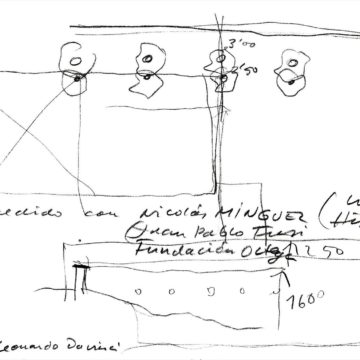 3'00
2'50
edido con Nicolás MÍNGUEZ (
Juan Pablo
Fundación
250
1600
Leonardo Davinci